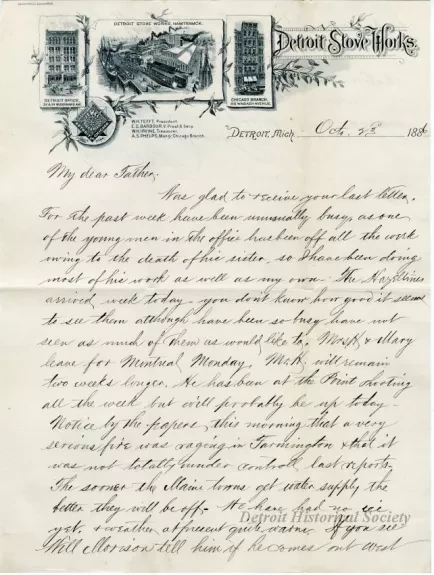 DETROIT STOVE WORKS, HAMTRAMCK.
Detroit Stove Works.
DETROIT OFFICE,
CHICAGO BRANCH,
W.H. TEFFT, President.
E.S. BARBOUR, V. Prest & Secy.
W.H. IRVINE, Treasurer.
A.S. PHELPS, Mang'r Chicago Branch.
DETROIT, Mich. Oct. 23 188
My dear Father,
Was glad to receive your last letter.
For the past week have been unusually busy, as one
of the young men in the office has been off all the week
owing to the death of his sister, so I have been doing
most of his work as well as my own. The
arrived week today - you don't know how good it seemed
to see them although have been so busy have not
seen as much of them as would like to. & Mary
leave for Montreal Monday. will remain
two weeks longer. He has been at the Point shooting
all the week but will probably be up today -
Notice by the papers this morning that a very
serious fire was raging in Farmington & that it
was not totally under controll last reports.
The sooner the Maine towns get water supply the
better they will be off. We have had no
yet, & weather at present quite warm. If you see
Will Morison tell him if he comes out west
Detroit Historical Society